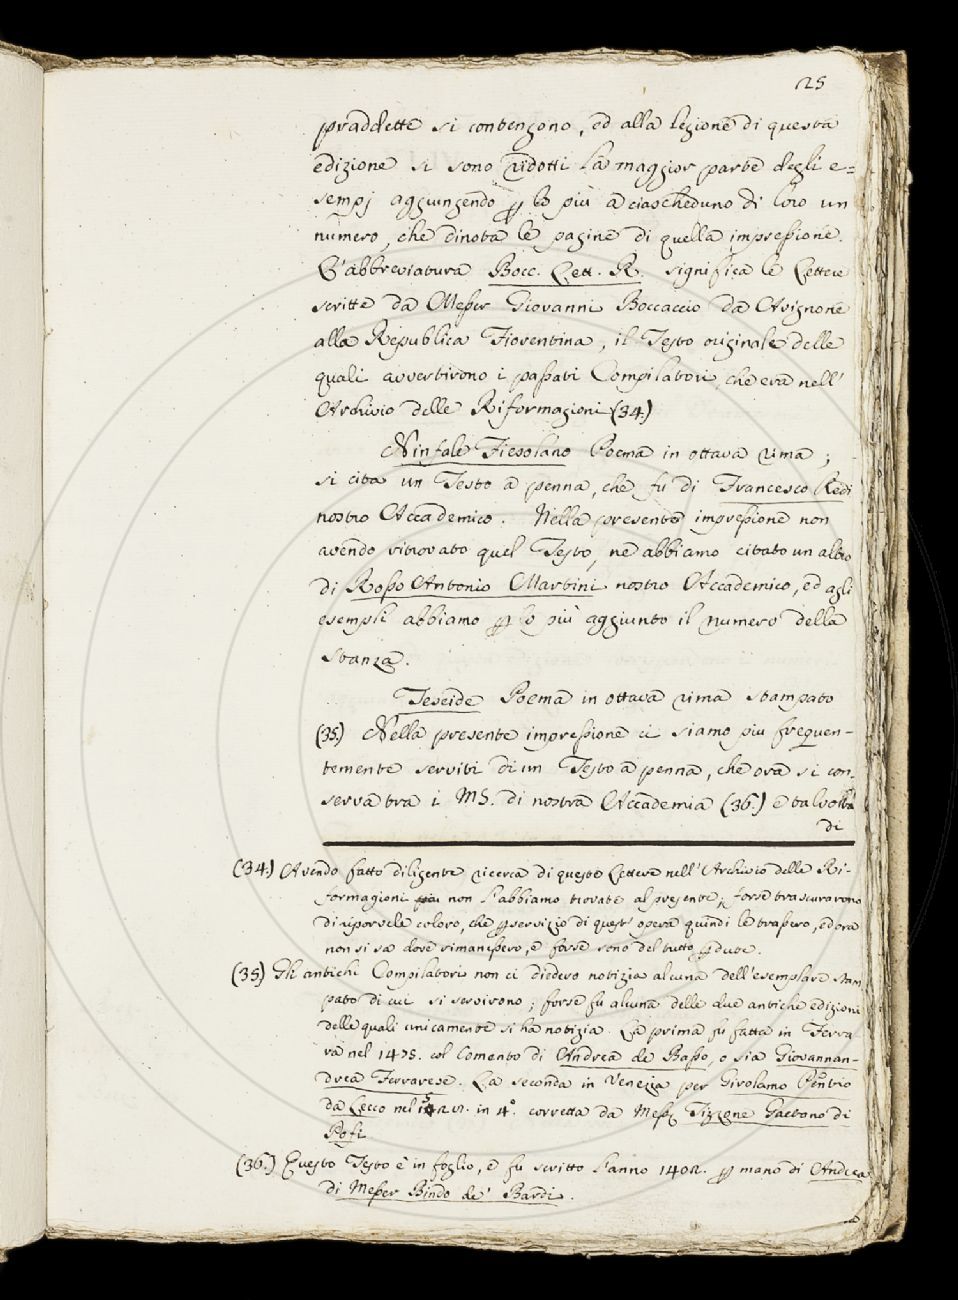 25
praddette si contengono, ed alla lezione di questa
edizione si sono ridotti la maggior parte degli e=
sempj aggiungendo p lo più a ciascheduno di loro un
numero, che dinota le pagine di quella impressione.
L'abbreviatura Bocc. Lett. R. significa le Lettere
scritte da Messer Giovanni Boccaccio da Avignone
alla Republica Fiorentina, il Testo originale delle
quali avvertirono i passati Compilatori, che era nell'
Archivio delle Riformagioni (34.)
Ninfale Fiesolano Poema in ottava rima;
si cita un Testo a penna, che fu di Francesco Redi
nostro Accademico. Nella presente impressione non
avendo ritrovato quel Testo, ne abbiamo citato un altro
di Rosso Antonio Martini nostro Accademico, ed agli
esempli abbiamo p lo più aggiunto il numero della
stanza.
Teseide Poema in ottava rima stampato
(35.) Nella presente impressione ci siamo piu frequen-
temente serviti di un Testo a penna, che ora si con-
serva tra i MS. di nostra Accademia (36.) e talvolta
di
(34.) Avendo fatto diligente ricerca di queste Lettere nell'Archivio delle Ri-
formagioni non l'abbiamo trovate al presente; forse trascurarono
di riporvele coloro, che p servizio di quest'opera quindi le trassero, ed ora
non si sa dove rimanessero, e forse sono del tutto pdute.
(35) Gli antichi Compilatori non ci diedero notizia alcuna dell'esemplare stam
pato di cui si servirono; forse fu alcuna delle due antiche edizioni
delle quali unicamente si ha notizia. La prima fu fatta in Ferra-
ra nel 1475. col Comento di Andrea de Basso, o sia Giovannan-
drea Ferrarese. La seconda in Venezia per Girolamo Pentio
da Lecco nel in 4.° corretta da Mess. Tizzone Gaetano di
Pofi
(36.) Questo Testo è in foglio, e fu scritto l'anno 1402. p mano di Andrea
di Messer Bindo de' Bardi.